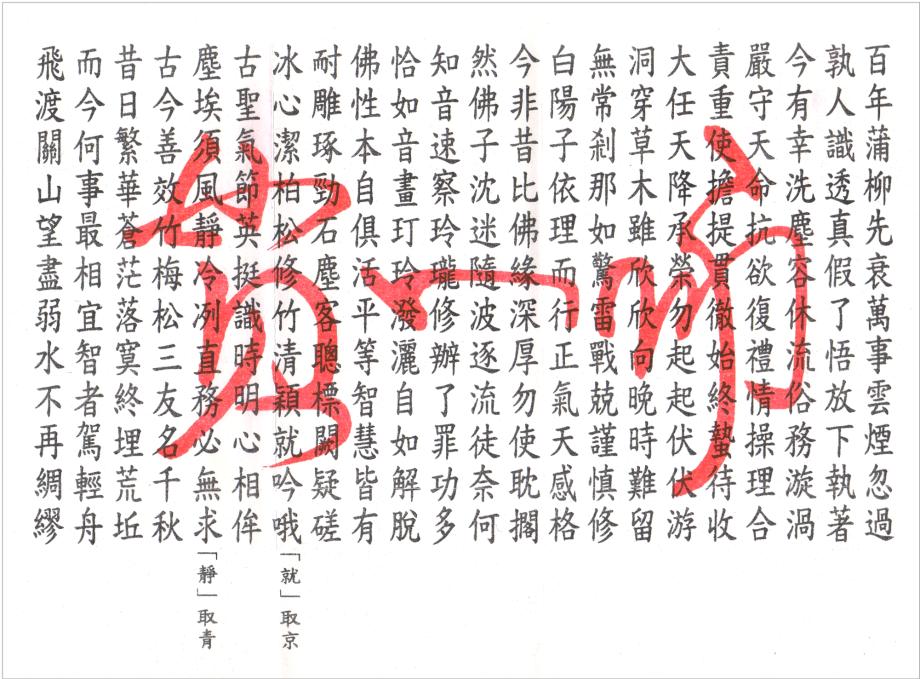 百年蒲柳先衰萬事雲煙忽過
孰人識透真假了悟放下執著
今有幸洗塵容休流俗務漩渦
嚴守天命抗欲復禮情操理合
責重使擔提貫徹始終蟄待收
大任天降承榮勿起起伏伏游
洞穿草木雖欣欣向晚時難留
無常剎那如驚雷戰兢謹慎修
白陽子依理而行正氣天感格
今非昔比佛緣深厚勿使耽擱
然佛子沈迷隨波逐流徒奈何
知音速察玲瓏修辦了罪功多
恰如音畫玎玲潑灑自如解脫
佛性本自俱活平等智慧皆有
耐雕琢勁石塵客聰標闕疑磋
冰心潔柏松修竹清穎就吟哦「就」取京
古聖氣節英挺識時明心相侔
塵埃須風靜冷冽直務必無求「靜」取青
古今善效竹梅松三友名千秋
昔日繁華蒼茫落寞終埋荒坵
而今何事最相宜智者駕輕舟
飛渡關山望盡弱水不再綢繆